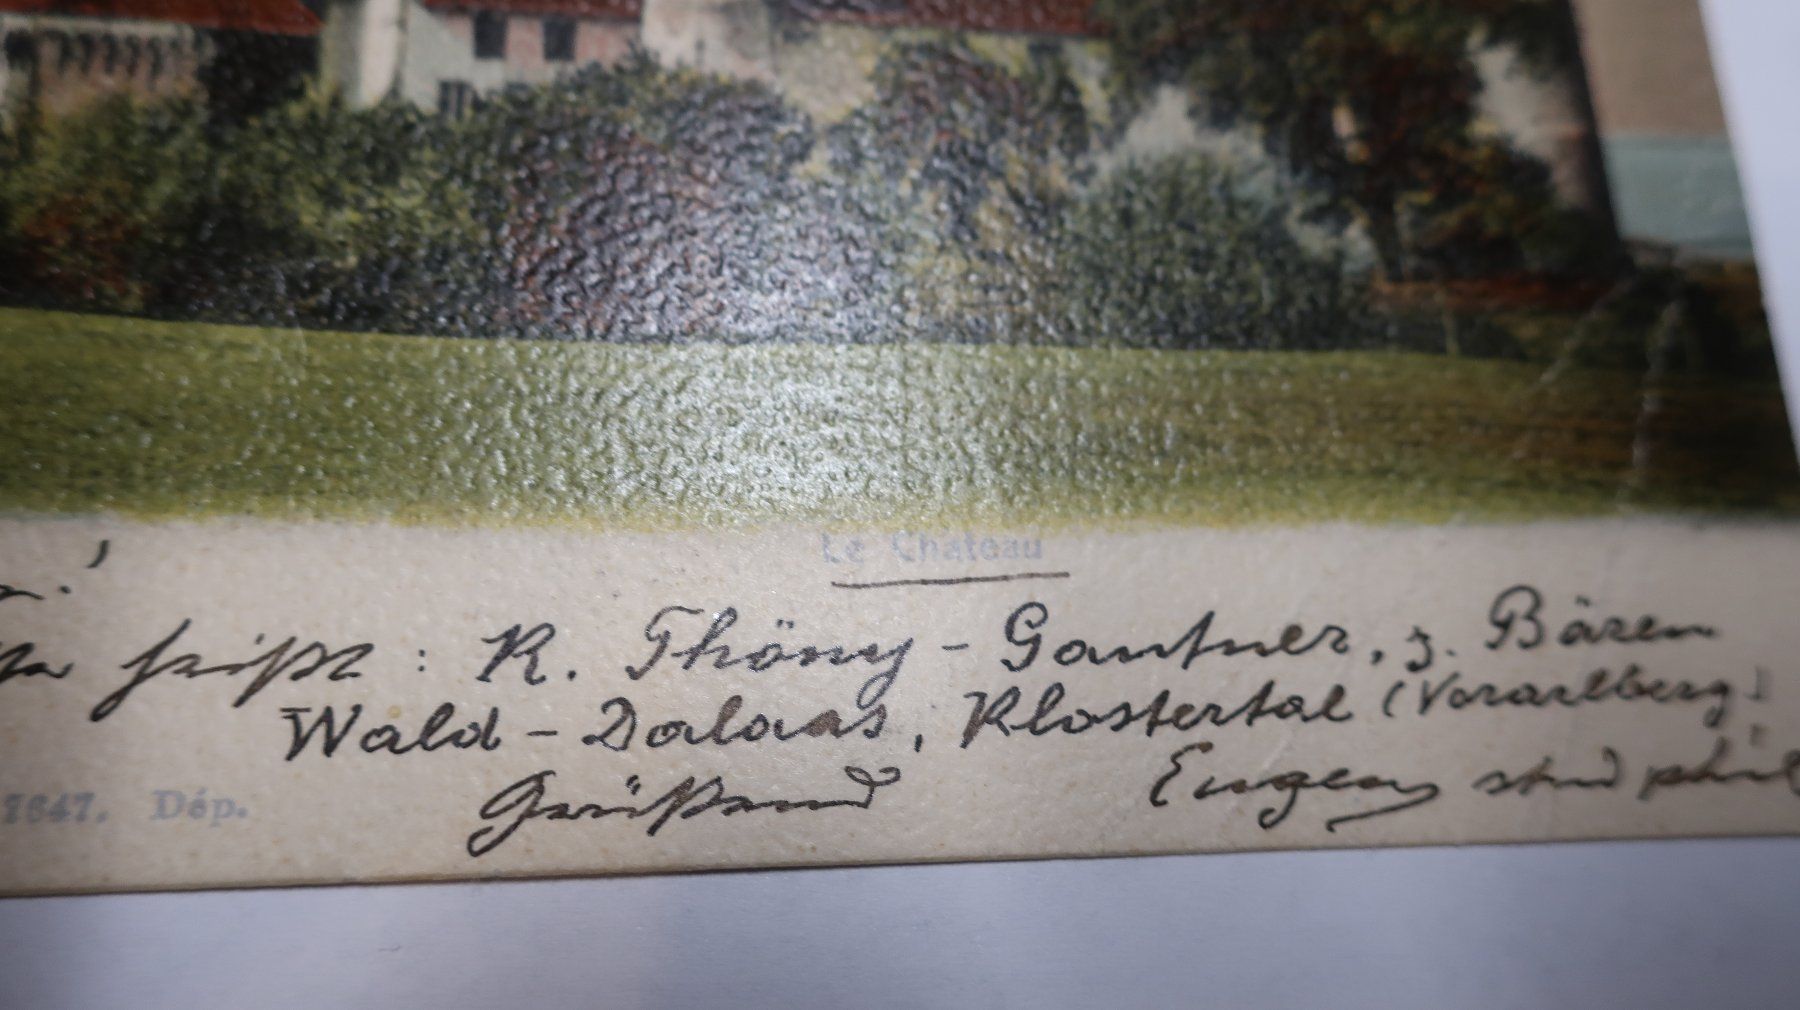 Le Château
heißt : K. Thöny - Gantner, z. Bären
Wald - Dalaas, Klostertal (Vorarlberg)
7647. Dép. Grüßend Eugen stud phil